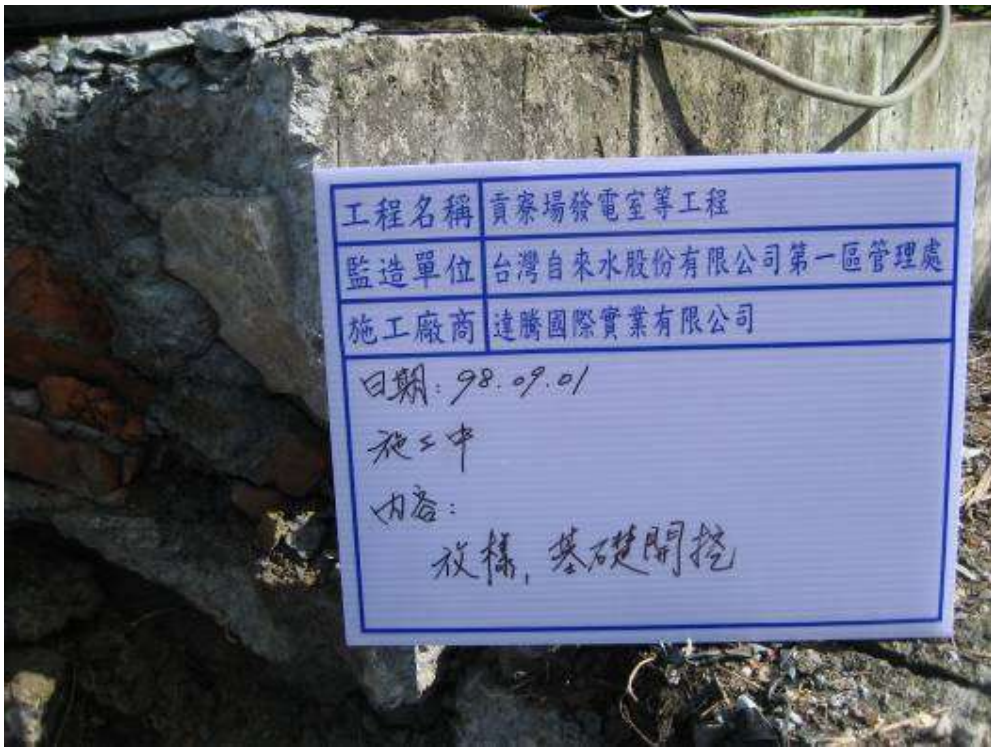 工程名稱 貢寮場發電室等工程
監造單位 台灣自來水股份有限公司第一區管理處
施工廠商 達騰國際實業有限公司
日期:98.09.01
施工中
內容:
放樣,基礎開挖